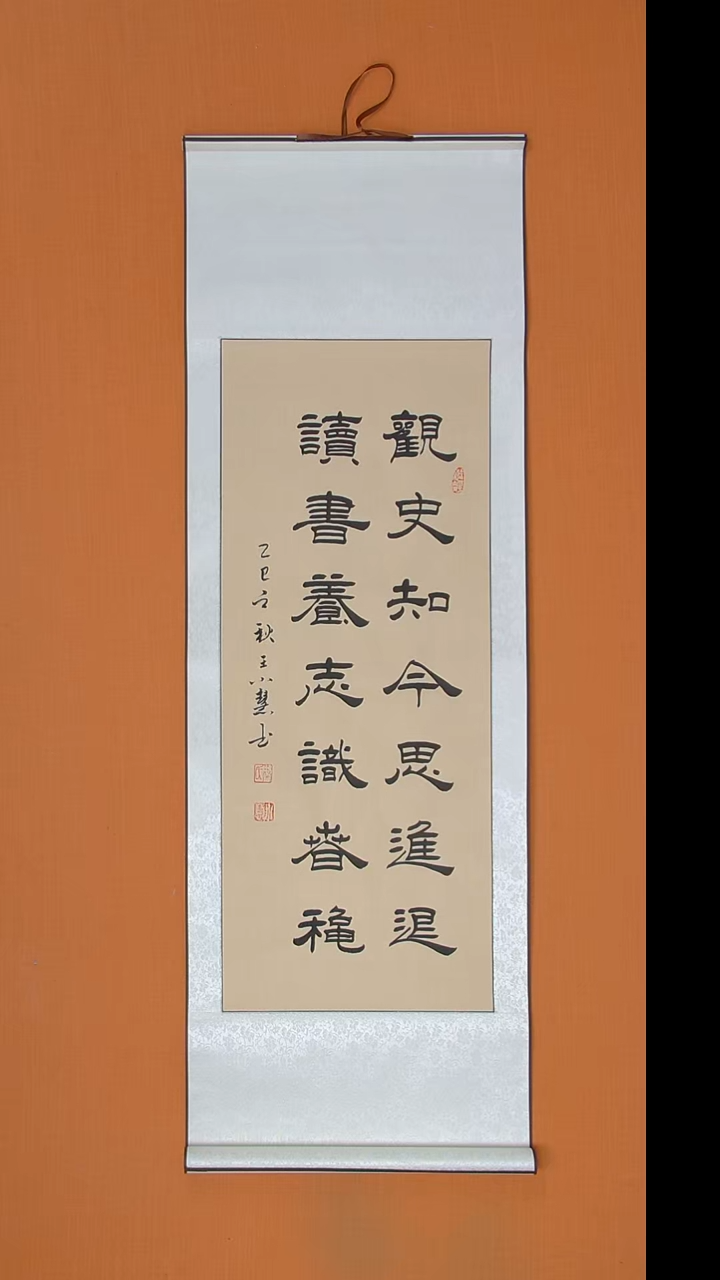 觀史知今思進退
讀書養志識春穐
乙巳之秋王小慧書